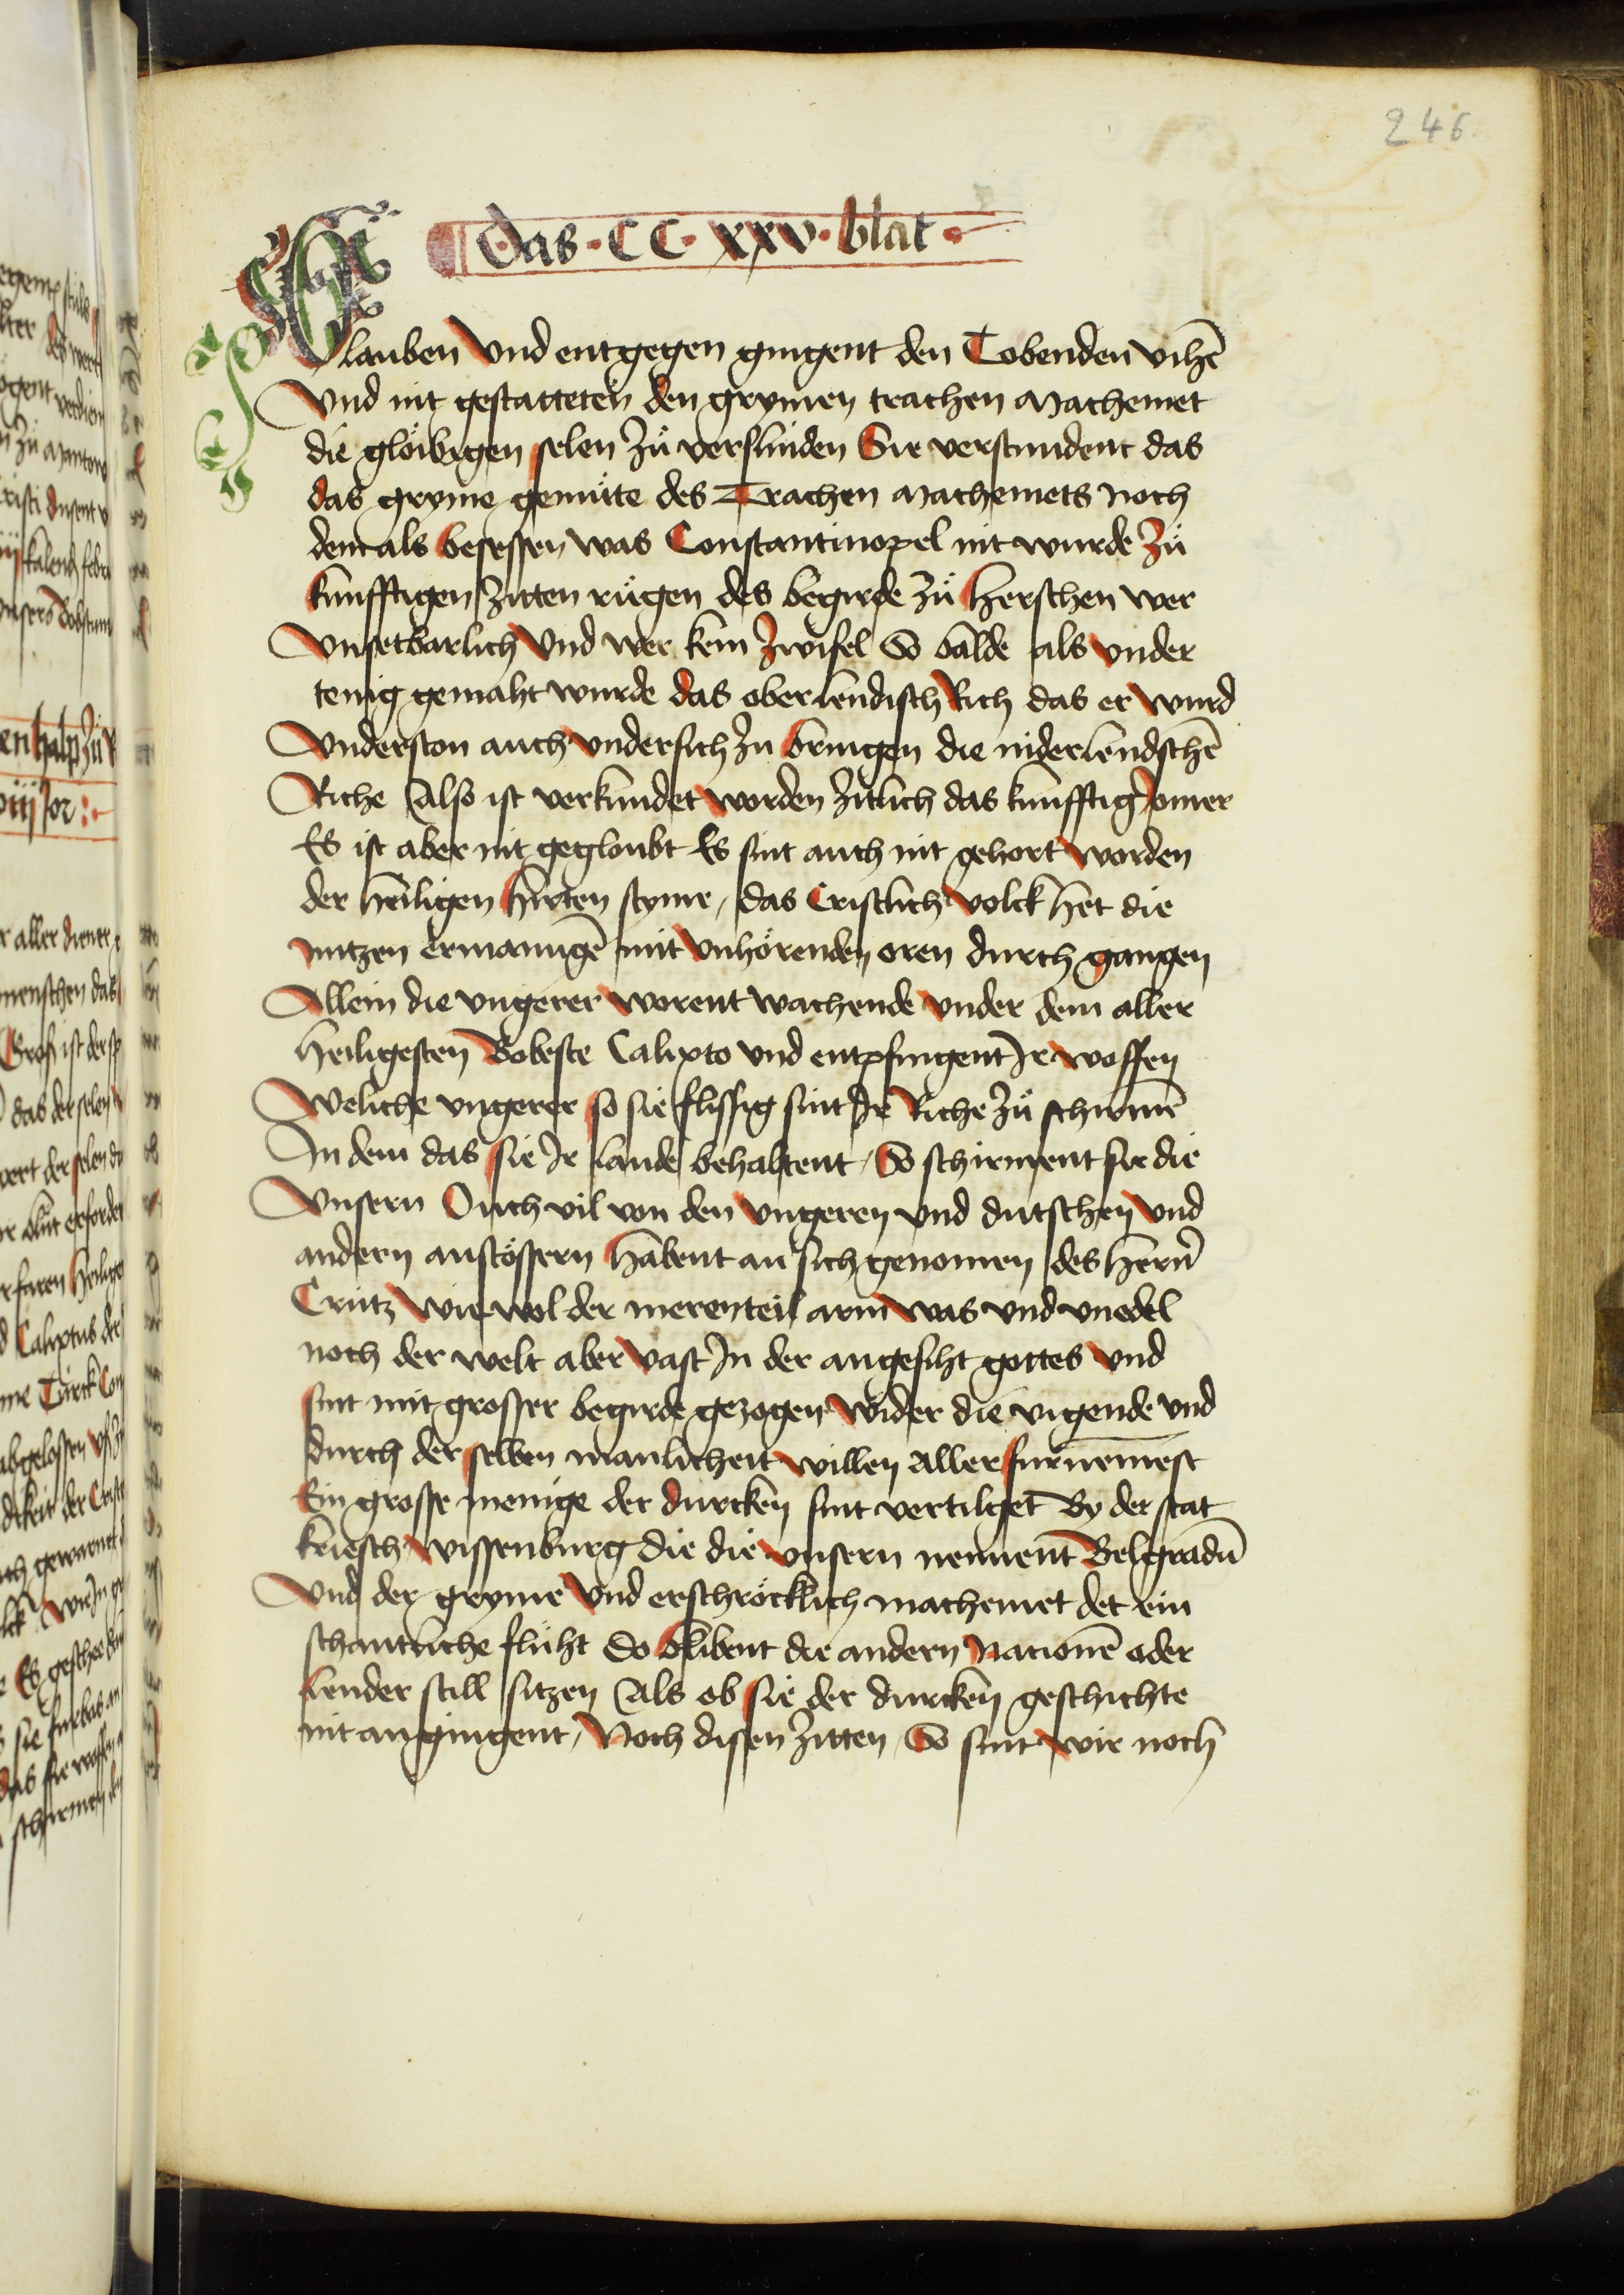 246
das · CC · xxv · blat ·
Glauben Vnd entgegen gingent den Tobenden vihē
Vnd nit gestatteten den grymen trachen Machemet
die glöibigen selen zů verslinden Sie verstundent das
das gryme gemüte des Trachen Machemets noch
dem als besessen was Constantinopel nit wurde zů
kunfftigen zitten růgen des begirde zů herschen wer
Vnsetbarlich Vnd wer kein zwifel So balde als vnder
tenig gemaht wurde das oberlendisch Rich das er wurd
Vnderston auch vndersich zu bringen die niderlendschē
Riche Also ist verkundet worden zitlich das kunfftig Jomer
Es ist aber nit gegloubt Es sint auch nit gehort worden
der heiligen hirten styme, das Cristlich volck het die
nutzen ermanungē mit vnhörenden oren durch gangen
Allein die vngerer worent wachende vnder dem aller
heiligesten Bobeste Calixto vnd entpfingent Ir woffen
Weliche vngerer so sie flissig sint Ir Riche zů schirmē
In dem das sie Ir lande behaltent, So schirment sie die
Vnsern Ouch vil von den vngeren vnd dutschen vnd
andern anstössern habent an sich genomen des herrn
Crutz wie wol der merenteil arm was vnd vnedel
noch der welt aber vast In der angesiht gottes vnd
sint mit grosser begirde gezogen wider die vigende vnd
durch der selben manlicheit willen aller furnemest
Ein grosse menige der durcken sint vertilget By der stat
kriesch wissenburg die die vnsern nennent Belgradū
Vnd der gryme Vnd erschröcklich machemet det ein
schantliche fluht Do blibent die andern Nationē oder
lender still sitzen Als ob sie der durcken geschichte
nit angingent, Noch disen zitten, So sint wir noch